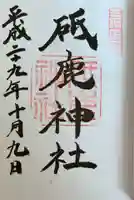 砥鹿神社
平成二十九年十月九日